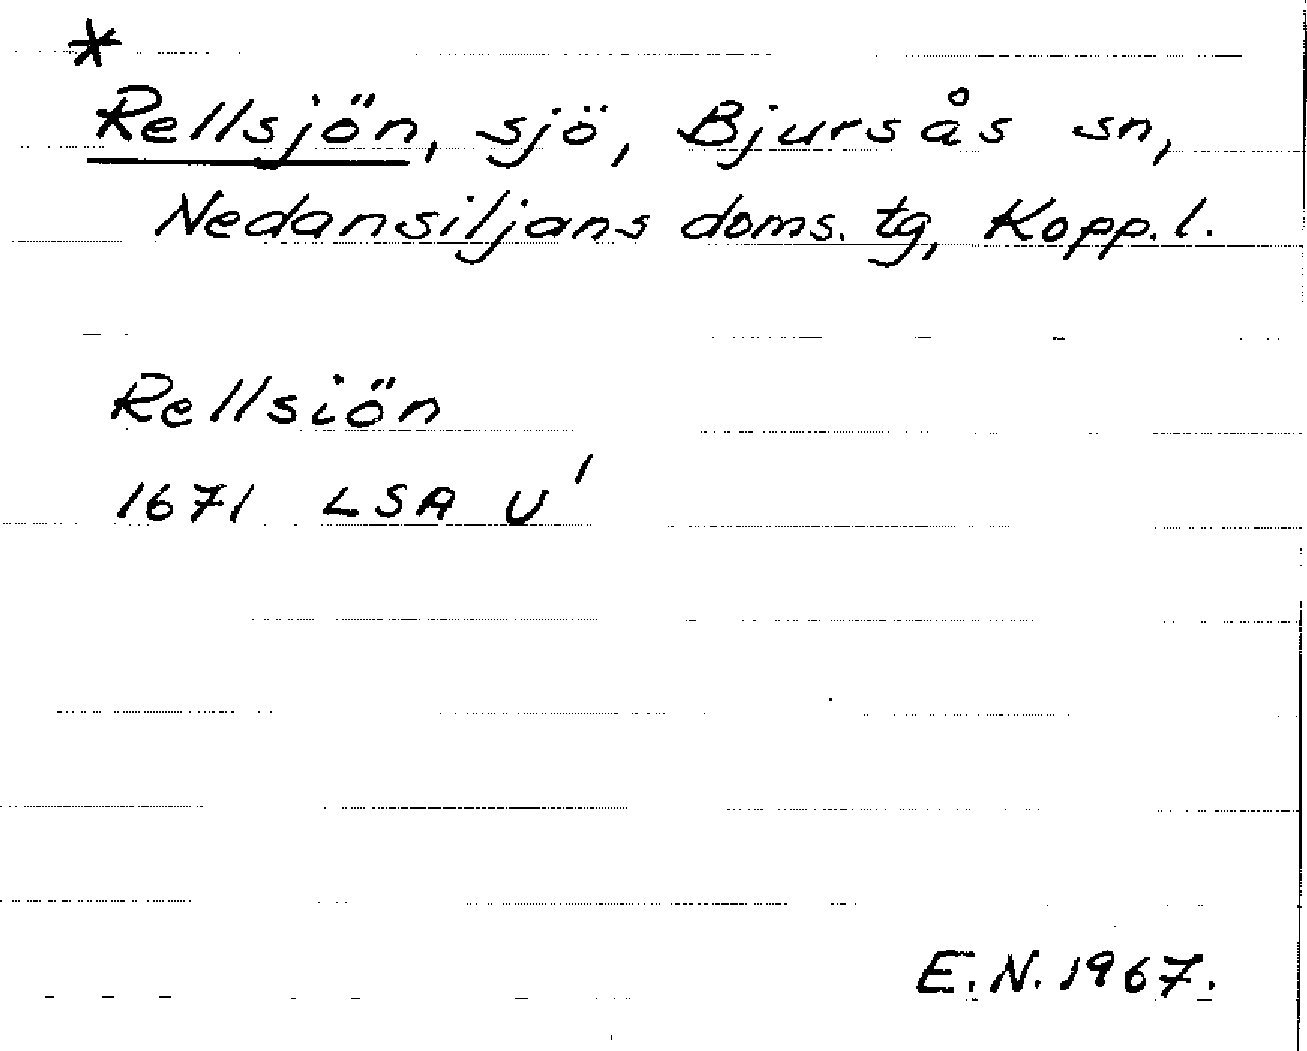 *
Rellsjön, sjö, Bjursås sn,
Nedansiljans doms. tg, Kopp. l.
Rellsiön
1671 LSA U'
E.N. 1967.